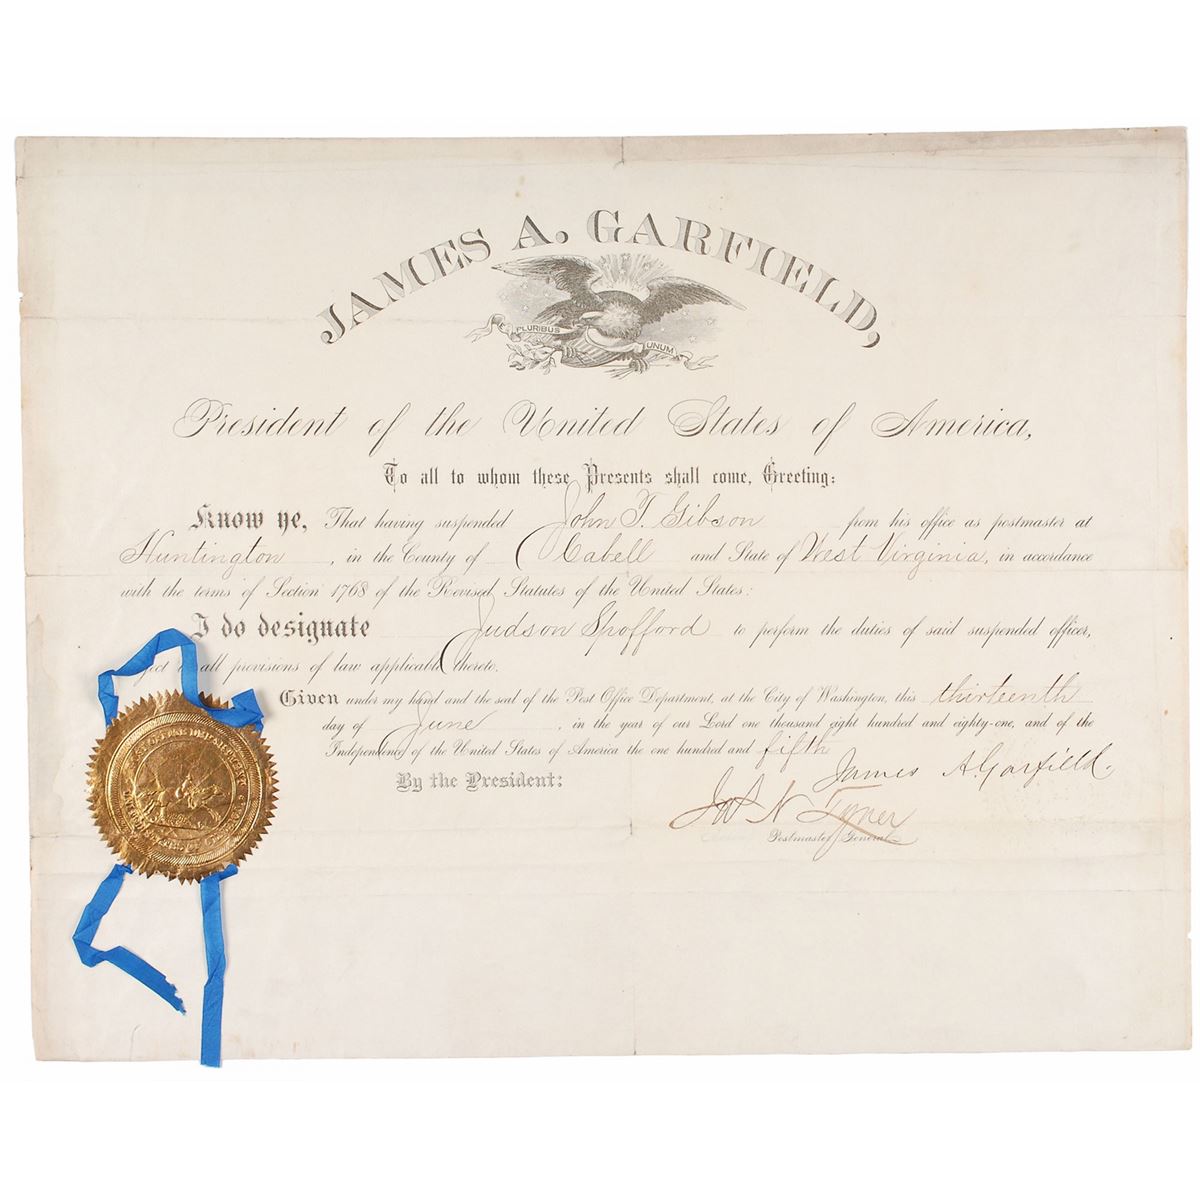 JAMES A. GARFIELD,
E PLURIBUS UNUM
President of the United States of America,
To all to whom these Presents shall come, Greeting:
Know ye, That having suspended John T. Gibson from his office as postmaster at
Huntington, in the County of Cabell and State of West Virginia, in accordance
with the terms of Section 1768 of the Revised Statutes of the United States:
I do designate Judson Spofford to perform the duties of said suspended officer,
ject to all provisions of law applicable thereto.
Given under my hand and the seal of the Post Office Department, at the City of Washington, this thirteenth
day of June, in the year of our Lord one thousand eight hundred and eighty-one, and of the
Independence of the United States of America the one hundred and fifth
By the President:
James A. Garfield.
Jas N Tyner
Postmaster General
POST OFFICE DEPARTMENT
UNITED STATES OF AMERICA